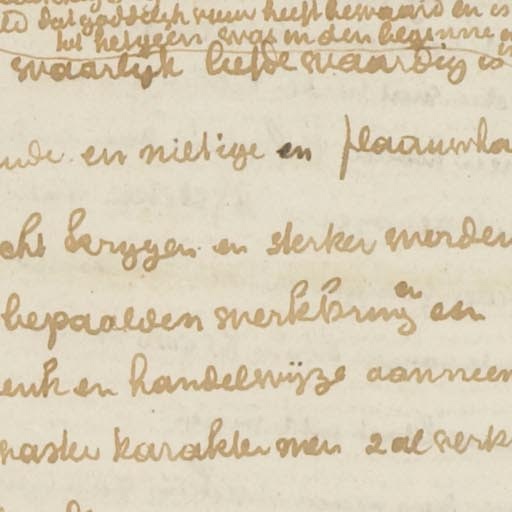 dat goddelyk vuur heeft bewaard en is
tot hetgeen wat in den beginne
waarlyk liefdewaardig is
en nietige en flaauwha
cht krygen en sterker worden
bepaalden werkkring en en
enk en handelwijze aanneem
vaster karakter men zal verk